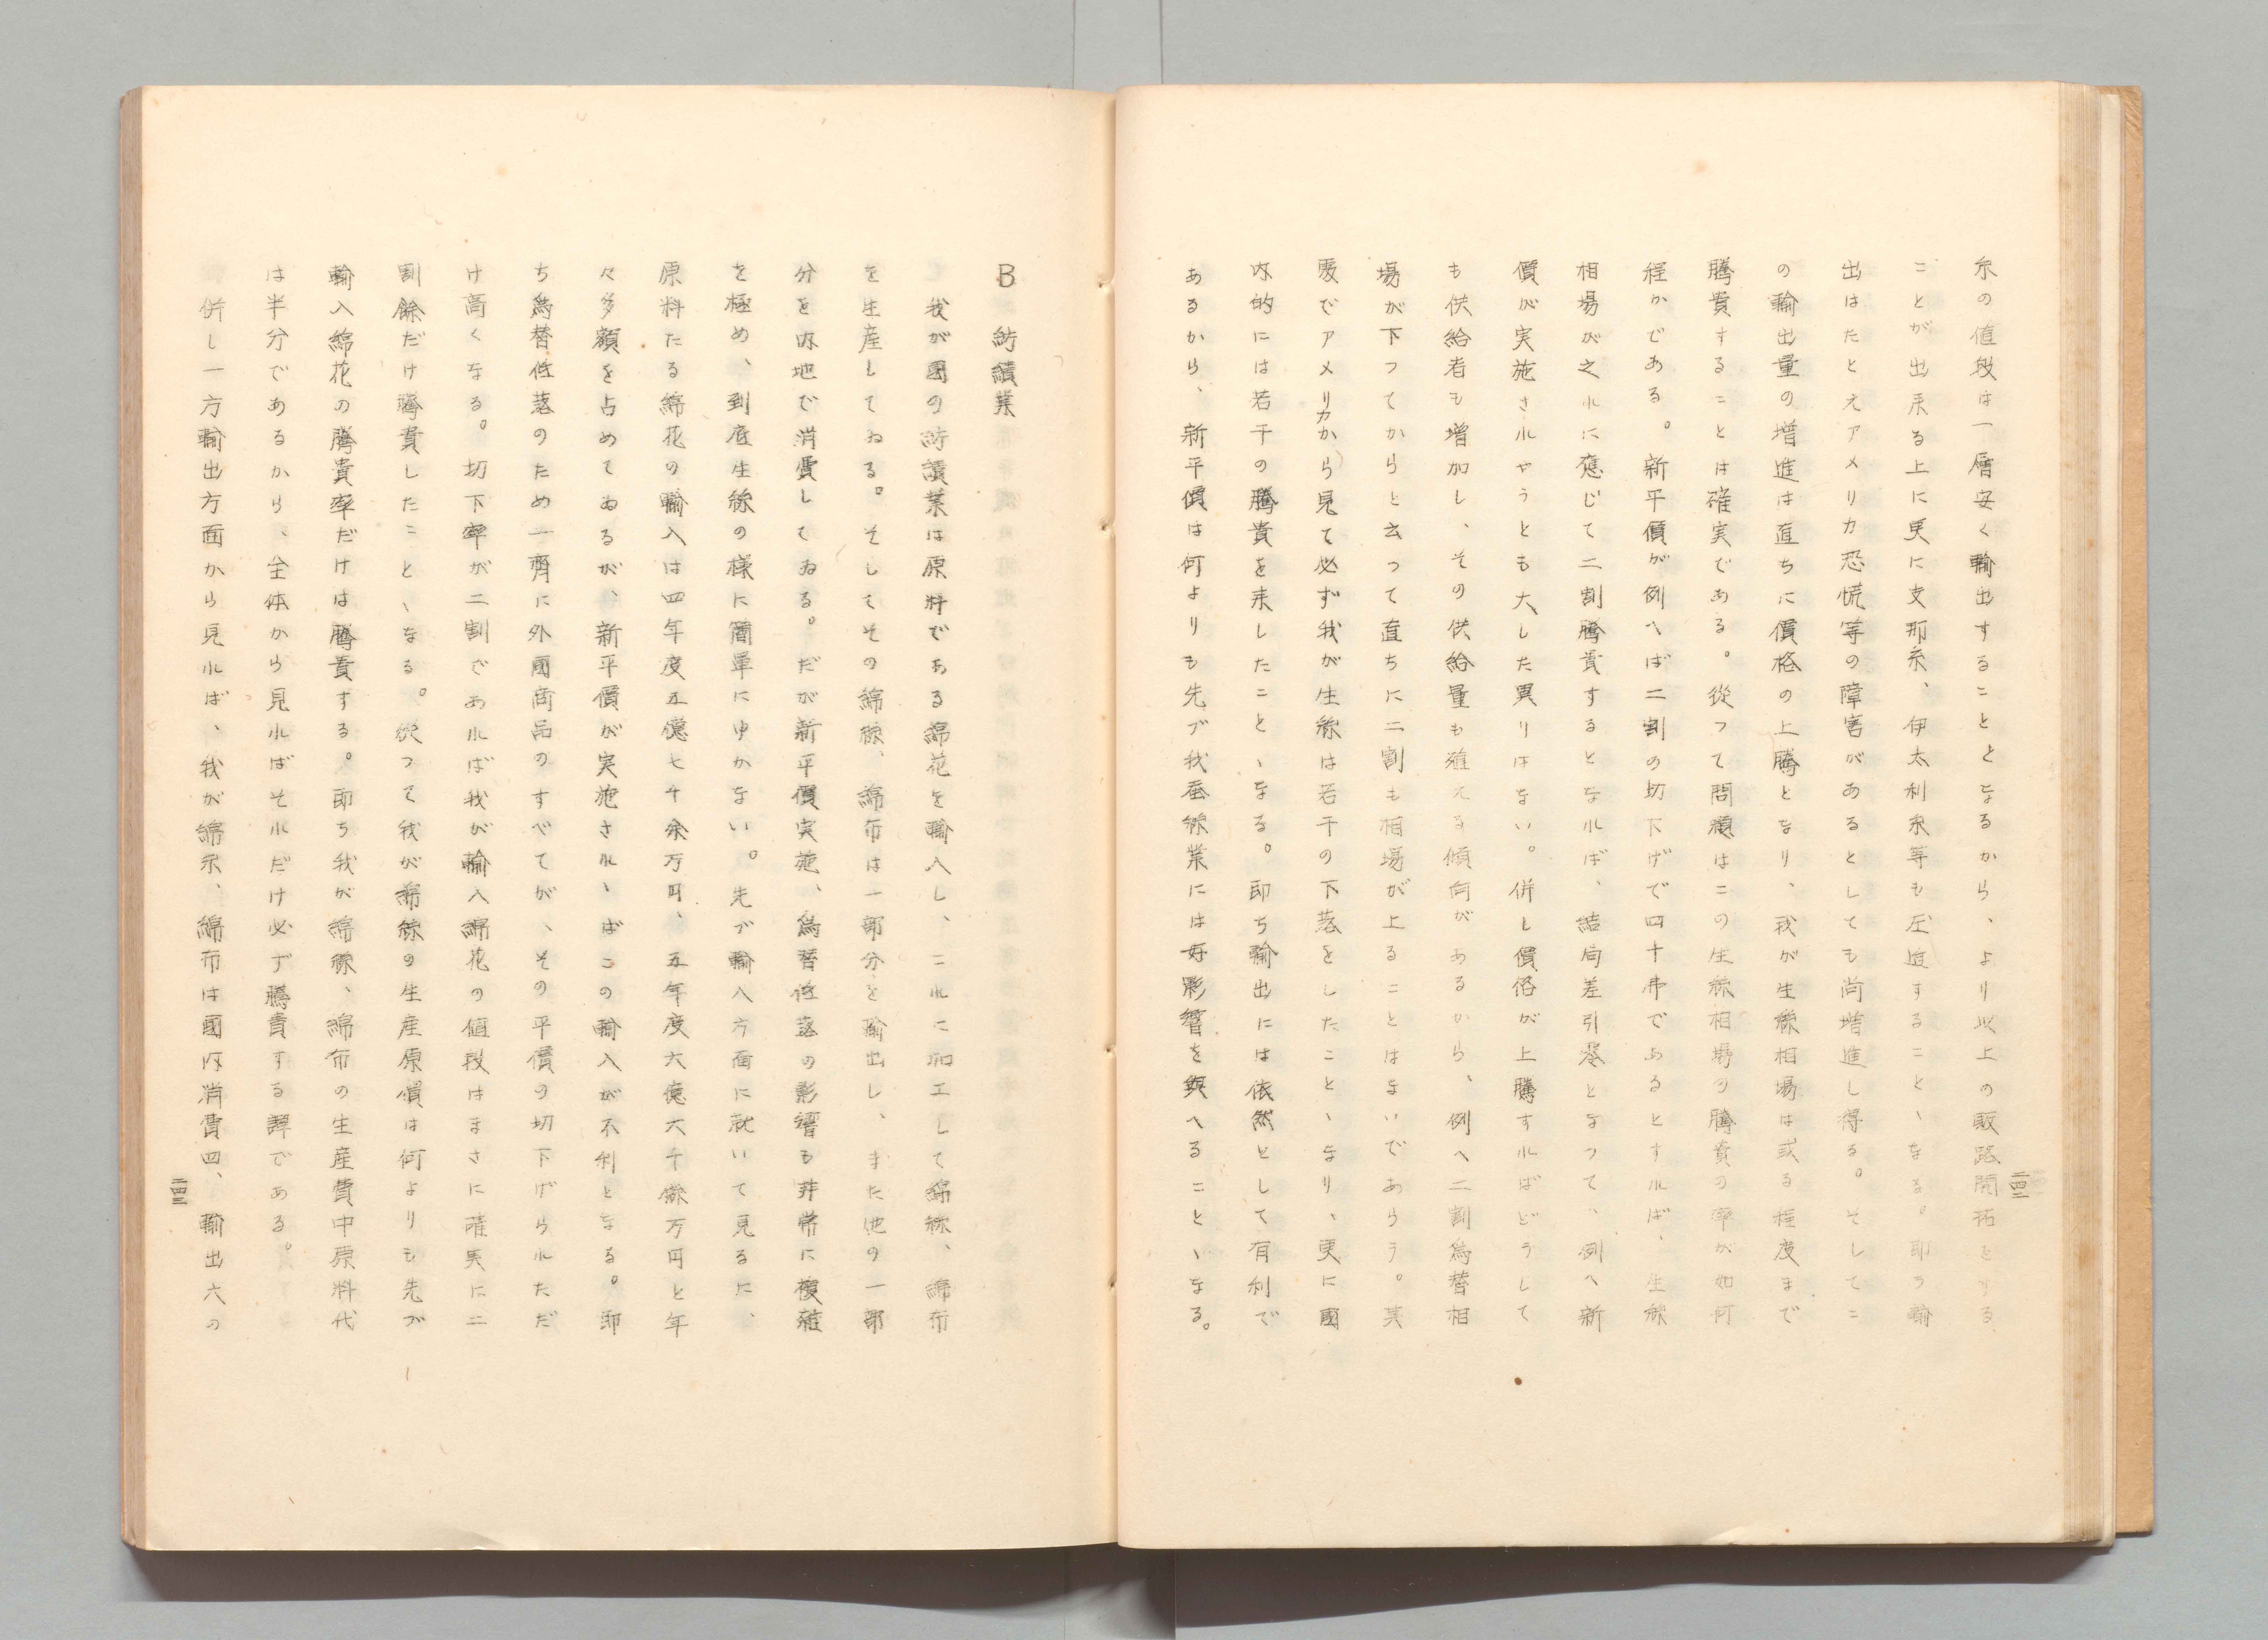 糸の値段は一層安く輸出することとなるから、より以上の販路開拓をする
ことが出来る上に更に支那糸、伊太利糸等も圧迫すること、なる。即ち輸
出はたとえアメリカ恐慌等の障害があるとしても尚増進し得る。そしてこ
の輸出量の増進は直ちに價格の上騰となり、我が生糸相場は或る程度まで
騰貴することは確実である。從つて問題はこの生糸相場の騰貴の率が如何
程かである。新平價が例へば二割の切下げで四十弗であるとすれば、生糸
相場が之れに應じて二割騰貴するとなれば、結局差引零となつて、例へ新
價が実施されやうとも大した異りはない。併し價格が上騰すればどうして
も供給者も増加し、その供給量も殖える傾向があるから、例へ二割為替相
場が下つてからと云つて直ちに二割も相場が上ることはないであらう。其
處でアメリカから見て必ず我が生糸は若干の下落をしたこと、なり、更に國
内的には若干の騰貴を来したこと、なる。即ち輸出には依然として有利で
あるから、新平價は何よりも先づ我蚕糸業には好影響を與へること、なる。
二四二
B 紡績業
我が國の紡績業は原料である綿花を輸入し、これに加工して綿糸、綿布
を生産してゐる。そしてその綿糸、綿布は一部分を輸出し、また他の一部
分を内地で消費してゐる。だが新平價実施、為替低落の影響も非常に複雑
を極め、到底生糸の様に簡單にゆかない。先づ輸入方面に就いて見るに、
原料たる綿花の輸入は四年度五億七千余万円、五年度六億六千餘万円と年
々多額を占めてゐるが、新平價が実施されゝばこの輸入が不利となる。即
ち為替低落のため一齊に外國商品のすべてが、その平價の切下げられただ
け高くなる。切下率が二割であれば我が輸入綿花の値段はまさに確実に二
割餘だけ騰貴したこと、なる。從つて我が綿糸の生産原價は何よりも先づ
輸入綿花の騰貴率だけは騰貴する。即ち我が綿糸、綿布の生産費中原料代
は半分であるから、全体から見ればそれだけ必ず騰貴する譯である。
併し一方輸出方面から見れば、我が綿糸、綿布は國内消費四、輸出六の
二四三